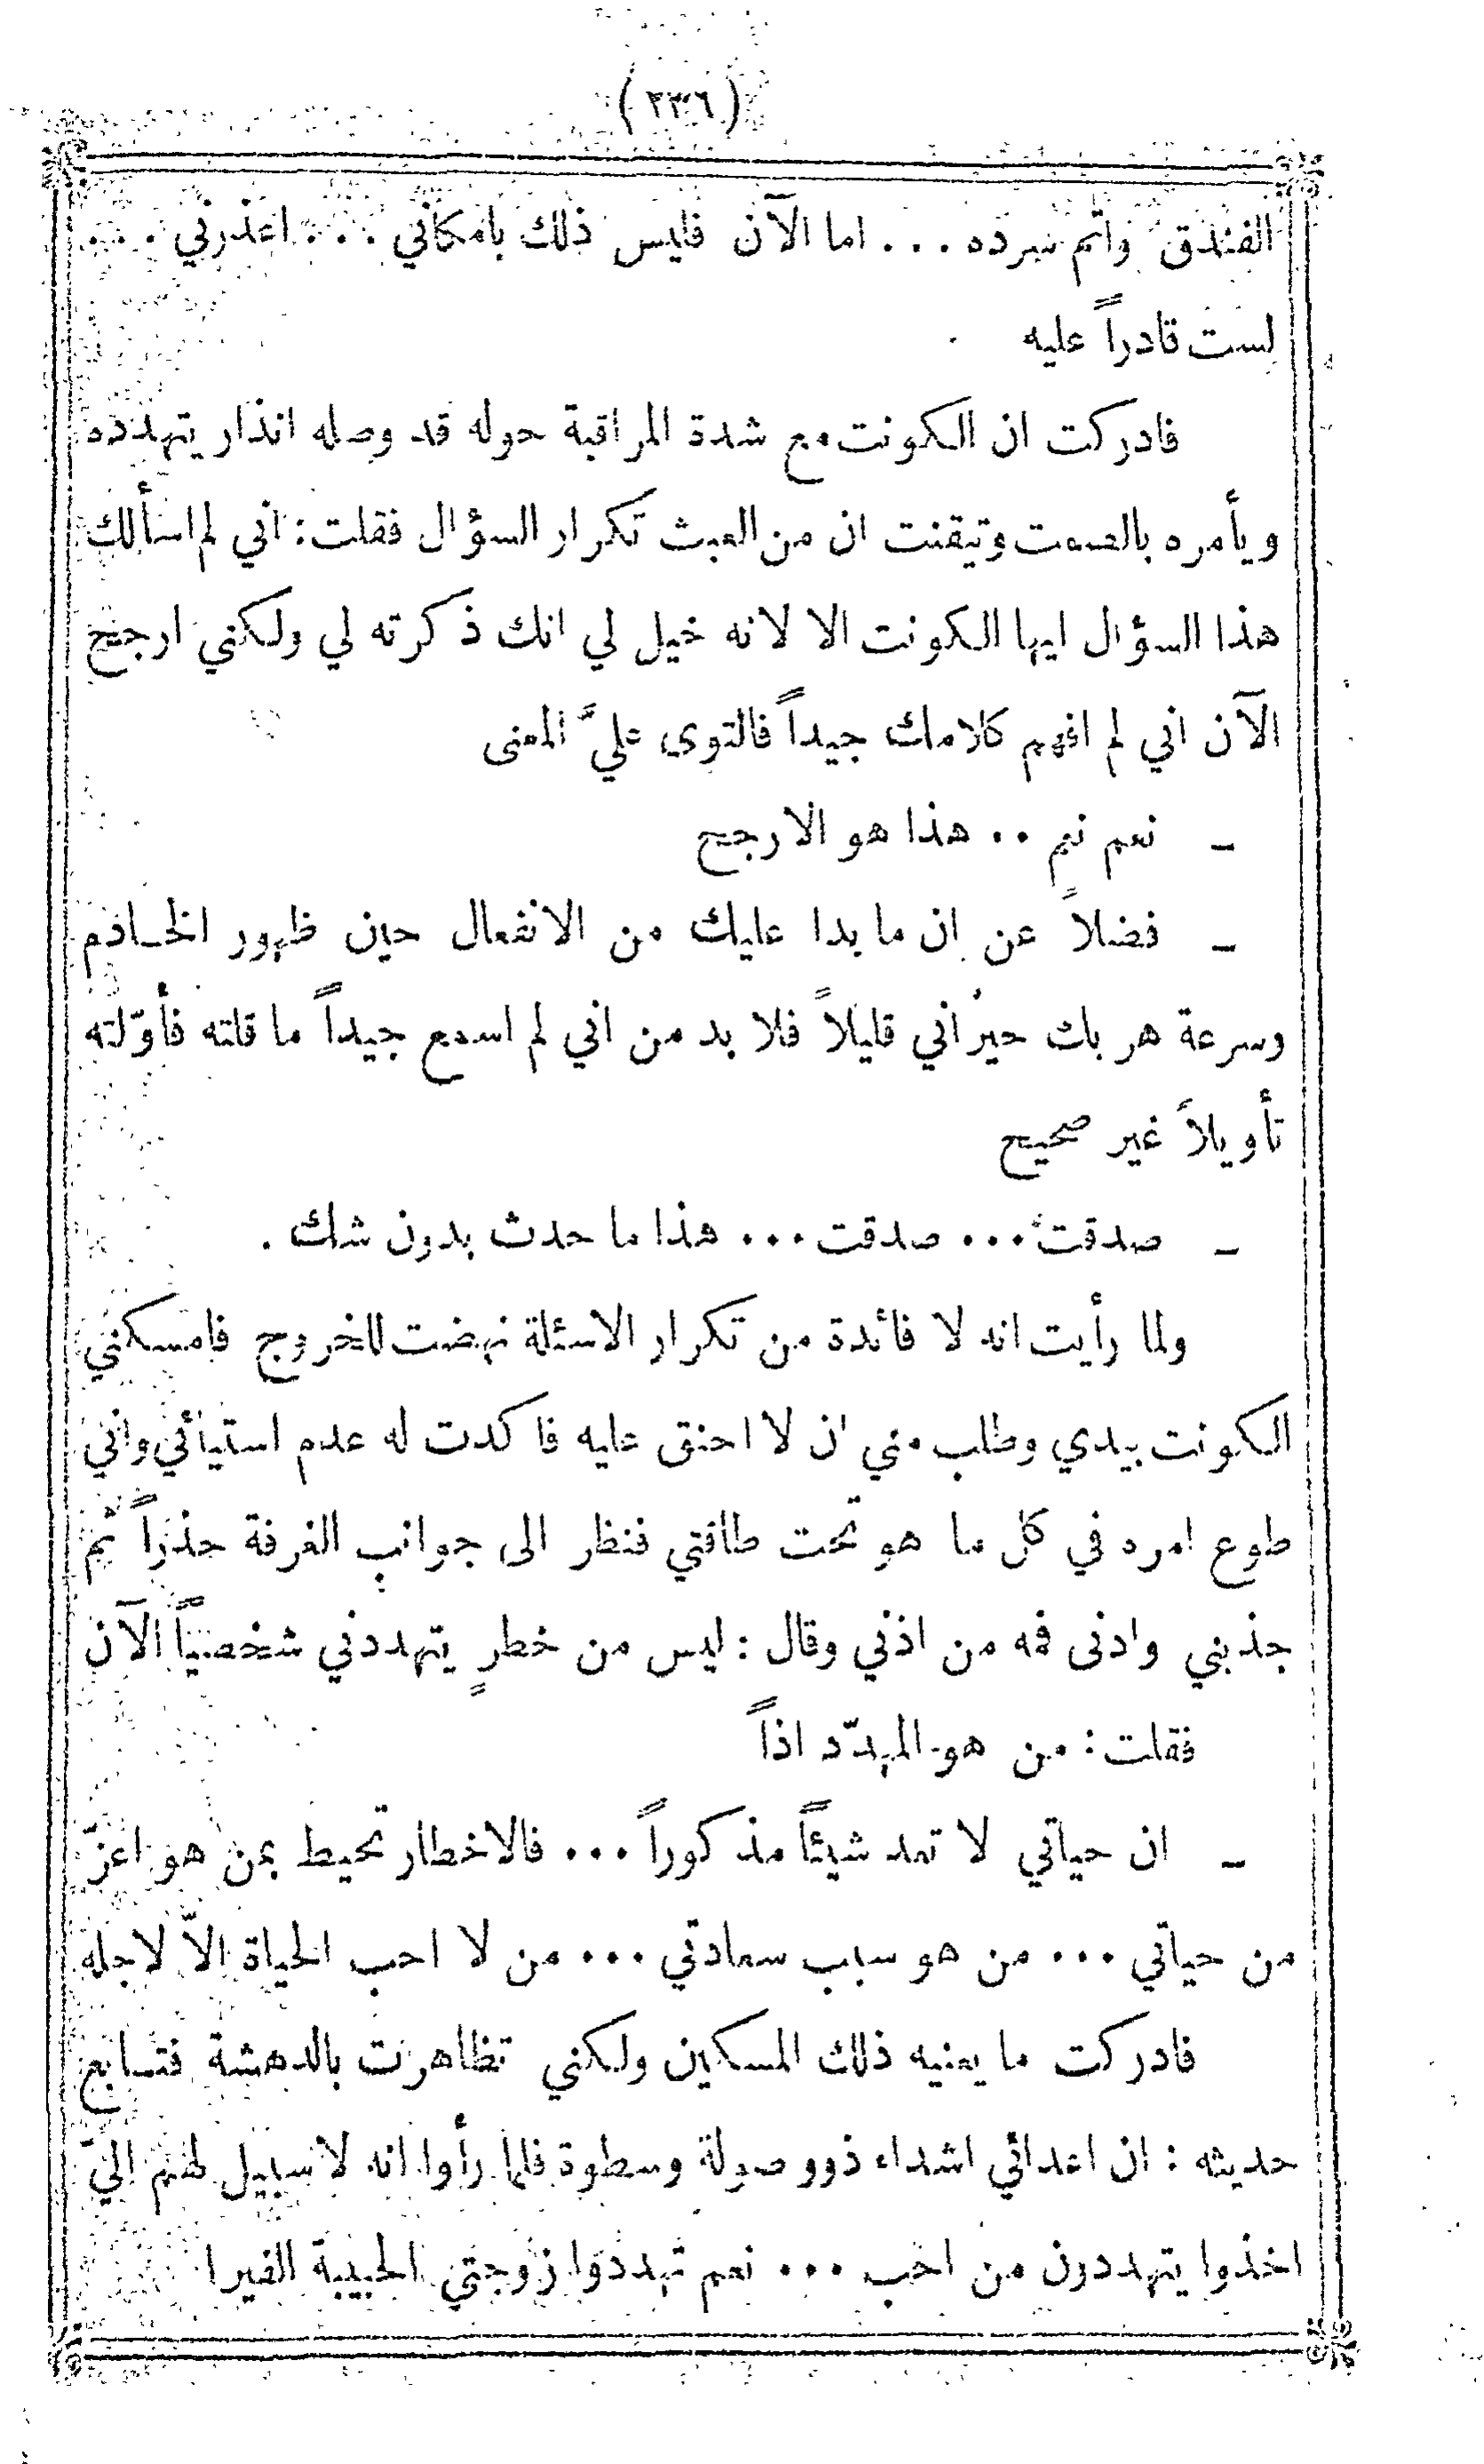 (٢٣٦)
الفندق واتم سرده . . . اما الآن فليس ذلك بامكاني . . . اعذرني . . .
لست قادراً عليه
فادركت ان الكونت مع شدة المراقبة حوله قد وصله انذار يتهدده
ويأمره بالصمت وتيقنت ان من العبث تكرار السؤال فقلت : اني لم اسألك
هذا السؤال ايها الكونت الا لانه خيل لي انك ذكرته لي ولكني ارجح
الآن اني لم افهم كلامك جيداً فالتوى عليَّ المعنى
ـ نعم نعم . . هذا هو الارجح
ـ فضلاً عن ان ما بدا عليك من الانفعال حين ظهور الخادم
وسرعة هربك حيراني قليلاً فلا بد من اني لم اسمع جيداً ما قلته فأوّلته
تأويلاً غير صحيح
ـ صدقت . . . صدقت . . . هذا ما حدث بدون شك .
ولما رأيت انه لا فائدة من تكرار الاسئلة نهضت للخروج فامسكني
الكونت بيدي وطلب مني ان لا احنق عليه فاكدت له عدم استيائي واني
طوع امره في كل ما هو تحت طاقتي فنظر الى جوانب الغرفة حذراً ثم
جذبني وادنى فمه من اذني وقال : ليس من خطرٍ يتهددني شخصياً الآن
فقلت : من هو المهدّد اذاً
ـ ان حياتي لا تعد شيئاً مذكوراً . . . فالاخطار تحيط بمن هو اعزّ
من حياتي . . . من هو سبب سعادتي . . . من لا احب الحياة الاّ لاجله
فادركت ما يعنيه ذلك المسكين ولكني تظاهرت بالدهشة فتابع
حديثه : ان اعدائي اشداء ذوو صولة وسطوة فلما رأوا انه لا سبيل لهم اليّ
اخذوا يتهددون من احب . . . نعم تهددوا زوجتي الحبيبة الفيرا